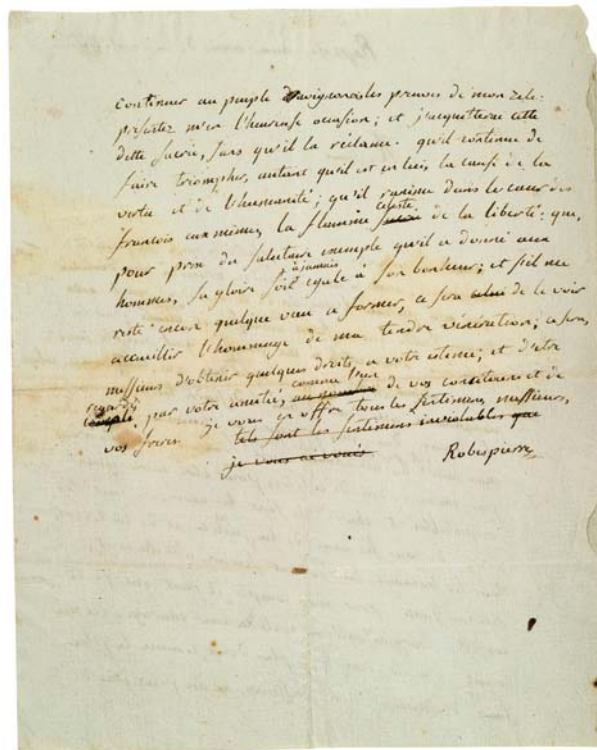 continuer au peuple d'avignon les preuves de mon zele.
presentez m'en l'heureuse occasion; et j'acquitterai cette
dette sacrée, sans qu'il la reclame. qu'il continue de
faire triompher, autant qu'il est en lui, la cause de la
vertu et de l'humanité; qu'il ranime dans le cœur des
françois eux mêmes, la flamme sacrée céleste de la liberté: que,
pour prix du salutaire exemple qu'il a donné aux
hommes, sa gloire soit à jamais egale à son bonheur; et s'il me
reste encore quelque vœu à former, ce sera celui de le voir
accueillir l'hommage de ma tendre vénération; ce sera,
messieurs d'obtenir quelques droits a votre estime; et d'etre
compté regardé par votre amitié, au nombre comme l'un de vos concitoiens et de
vos freres. je vous en offre tous les sentimens, messieurs,
tels sont les sentimens inviolables que
je vous ai voués
Robespierre